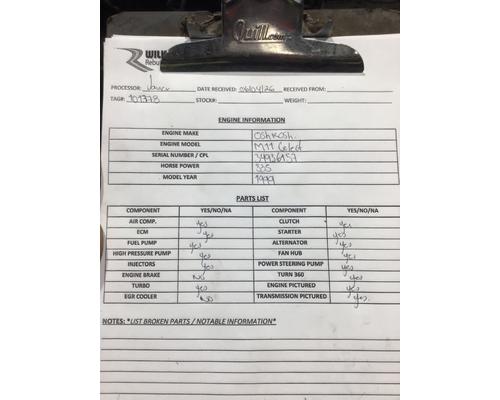 Quill.com
WILK
Rebu
PROCESSOR: DATE RECEIVED: 04/04/26 RECEIVED FROM:
TAG#: 101778 STOCK#: WEIGHT:
ENGINE INFORMATION
ENGINE MAKE OSHKOSH.
ENGINE MODEL M11
SERIAL NUMBER / CPL 34936157
HORSE POWER 335
MODEL YEAR 1999
PARTS LIST
COMPONENT YES/NO/NA COMPONENT YES/NO/NA
AIR COMP. yes CLUTCH yes
ECM yes STARTER yes
FUEL PUMP yes ALTERNATOR yes
HIGH PRESSURE PUMP yes FAN HUB yes
INJECTORS yes POWER STEERING PUMP yes
ENGINE BRAKE NO TURN 360 yes
TURBO yes ENGINE PICTURED yes
EGR COOLER NO TRANSMISSION PICTURED yes.
NOTES: *LIST BROKEN PARTS / NOTABLE INFORMATION*